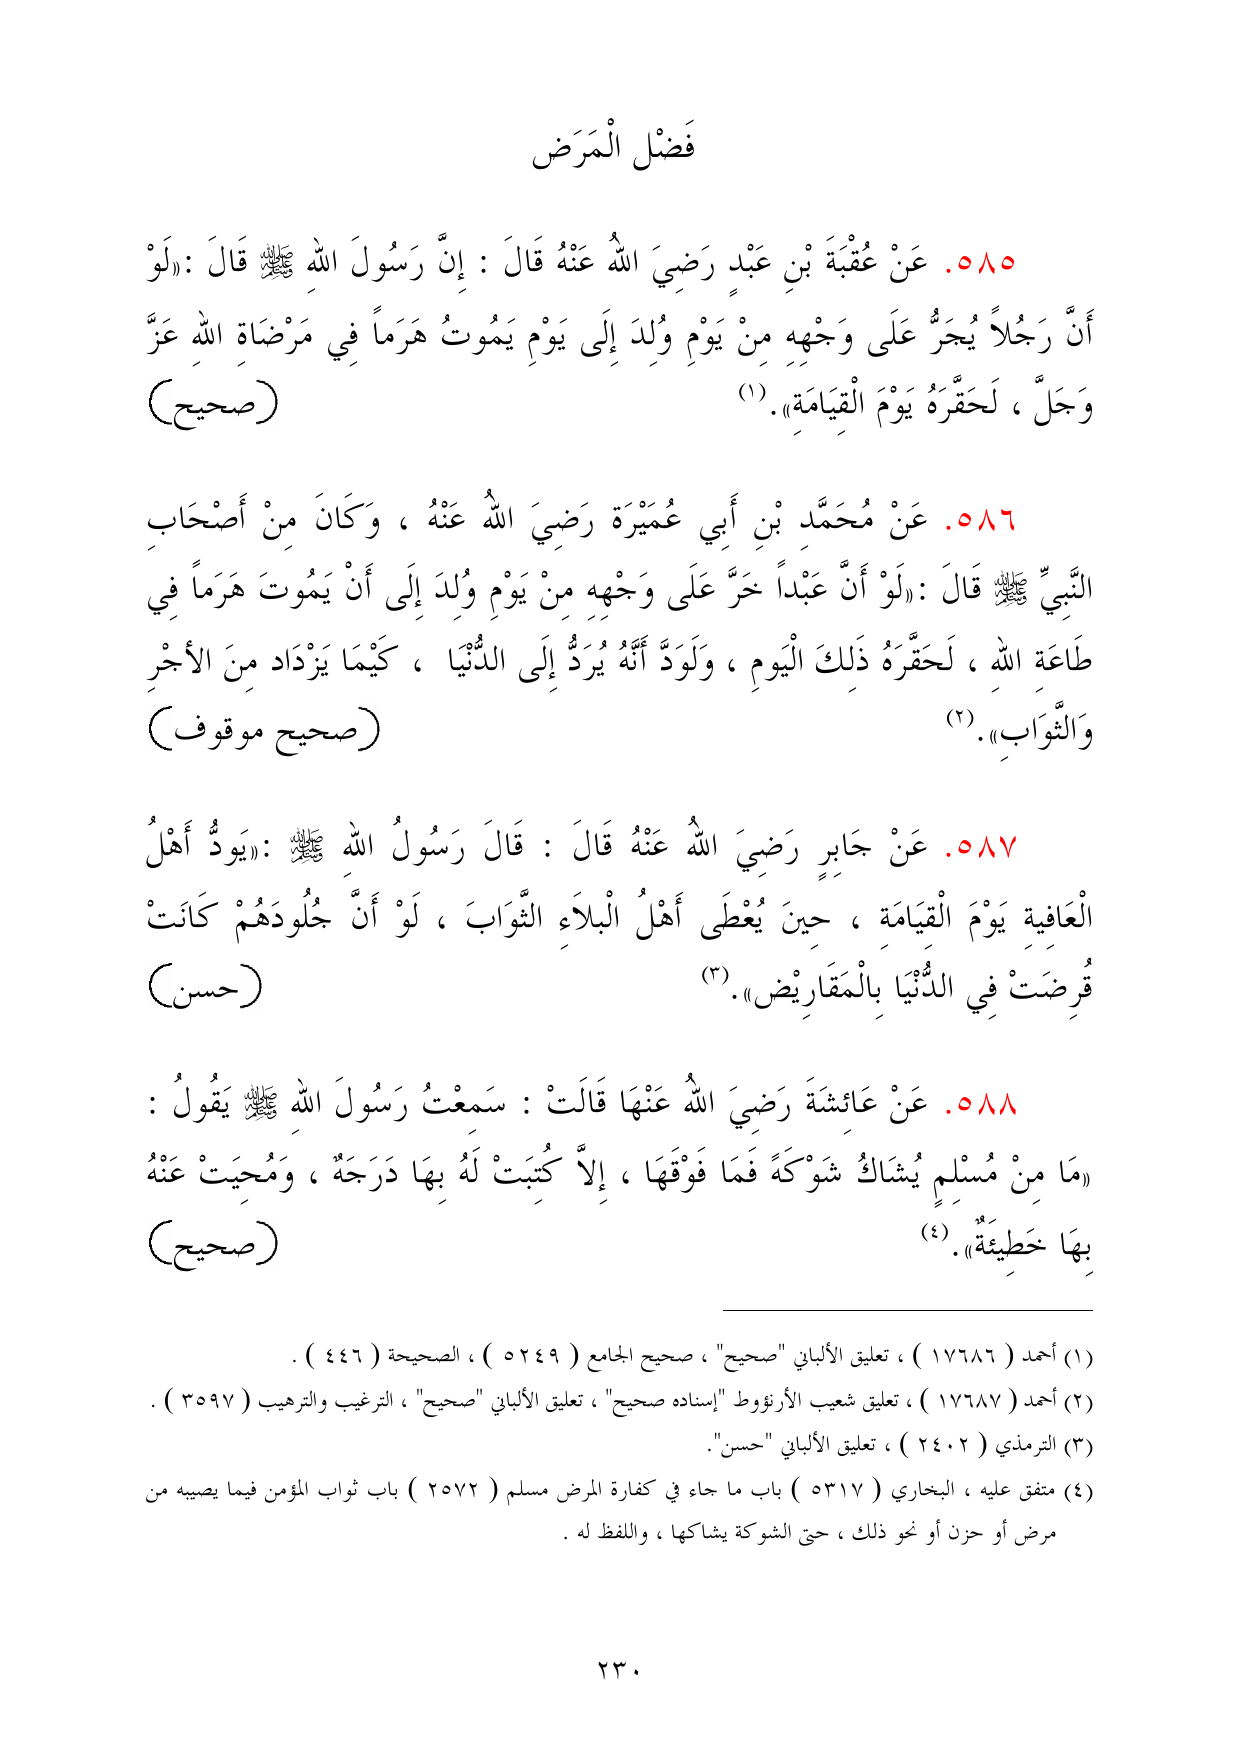 فَضْل الْمَرَض
٥٨٥. عَنْ عُقْبَةَ بْنِ عَبْدٍ رَضِيَ اللهُ عَنْهُ قَالَ : إِنَّ رَسُولَ اللهِ ﷺ قَالَ :«لَوْ
أَنَّ رَجُلاً يُجَرُّ عَلَى وَجْهِهِ مِنْ يَوْمِ وُلِدَ إِلَى يَوْمِ يَمُوتُ هَرَماً فِي مَرْضَاةِ اللهِ عَزَّ
وَجَلَّ ، لَحَقَّرَهُ يَوْمَ الْقِيَامَةِ».(١) (صحيح)
٥٨٦. عَنْ مُحَمَّدِ بْنِ أَبِي عُمَيْرَة رَضِيَ اللهُ عَنْهُ ، وَكَانَ مِنْ أَصْحَابِ
النَّبِيِّ ﷺ قَالَ :«لَوْ أَنَّ عَبْداً خَرَّ عَلَى وَجْهِهِ مِنْ يَوْمِ وُلِدَ إِلَى أَنْ يَمُوتَ هَرَماً فِي
طَاعَةِ اللهِ ، لَحَقَّرَهُ ذَلِكَ الْيَومِ ، وَلَوَدَّ أَنَّهُ يُرَدُّ إِلَى الدُّنْيَا ، كَيْمَا يَزْدَاد مِنَ الأجْرِ
وَالثَّوَابِ».(٢) (صحيح موقوف)
٥٨٧. عَنْ جَابِرٍ رَضِيَ اللهُ عَنْهُ قَالَ : قَالَ رَسُولُ اللهِ ﷺ :«يَودُّ أَهْلُ
الْعَافِيةِ يَوْمَ الْقِيَامَةِ ، حِينَ يُعْطَى أَهْلُ الْبلاَءِ الثَّوَابَ ، لَوْ أَنَّ جُلُودَهُمْ كَانَتْ
قُرِضَتْ فِي الدُّنْيَا بِالْمَقَارِيْض».(٣) (حسن)
٥٨٨. عَنْ عَائِشَةَ رَضِيَ اللهُ عَنْهَا قَالَتْ : سَمِعْتُ رَسُولَ اللهِ ﷺ يَقُولُ :
«مَا مِنْ مُسْلِمٍ يُشَاكُ شَوْكَةً فَمَا فَوْقَهَا ، إِلاَّ كُتِبَتْ لَهُ بِهَا دَرَجَةٌ ، وَمُحِيَتْ عَنْهُ
بِهَا خَطِيئَةٌ».(٤) (صحيح)
(١) أحمد ( ١٧٦٨٦ ) ، تعليق الألباني "صحيح" ، صحيح الجامع ( ٥٢٤٩ ) ، الصحيحة ( ٤٤٦ ) .
(٢) أحمد ( ١٧٦٨٧ ) ، تعليق شعيب الأرنؤوط "إسناده صحيح" ، تعليق الألباني "صحيح" ، الترغيب والترهيب ( ٣٥٩٧ ) .
(٣) الترمذي ( ٢٤٠٢ ) ، تعليق الألباني "حسن".
(٤) متفق عليه ، البخاري ( ٥٣١٧ ) باب ما جاء في كفارة المرض مسلم ( ٢٥٧٢ ) باب ثواب المؤمن فيما يصيبه من
مرض أو حزن أو نحو ذلك ، حتى الشوكة يشاكها ، واللفظ له .
٢٣٠